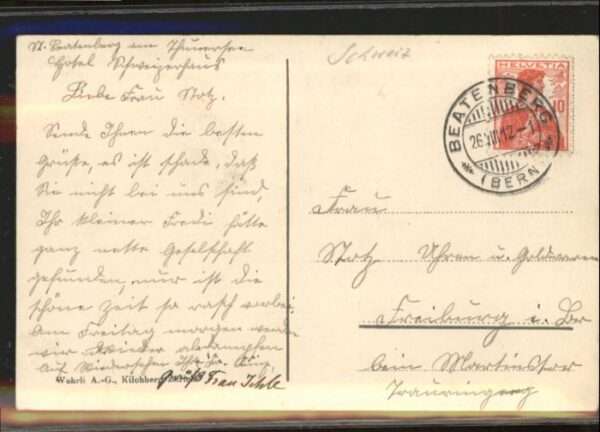 St. Beatenberg am Thunersee
Hotel Schweizerhaus
Liebe Frau Stotz.
Sende Ihnen die besten
Grüße, es ist schade, daß
Sie nicht bei uns sind,
Ihr kleiner Fredi hätte
ganz nette Gesellschaft
gefunden, nur ist die
schöne Zeit so rasch vorbei,
Am Freitag morgen werden
wir wieder abdampfen
Auf Wiedersehen
Wehrli A.-G., Kilchberg
Grüße Frau
Schweiz
HELVETIA
10
BEATENBERG
26.VIII.12.-1
(BERN)
Frau
Stotz, Uhren u. Goldwaren
Freiburg i. Br
beim Martinstor